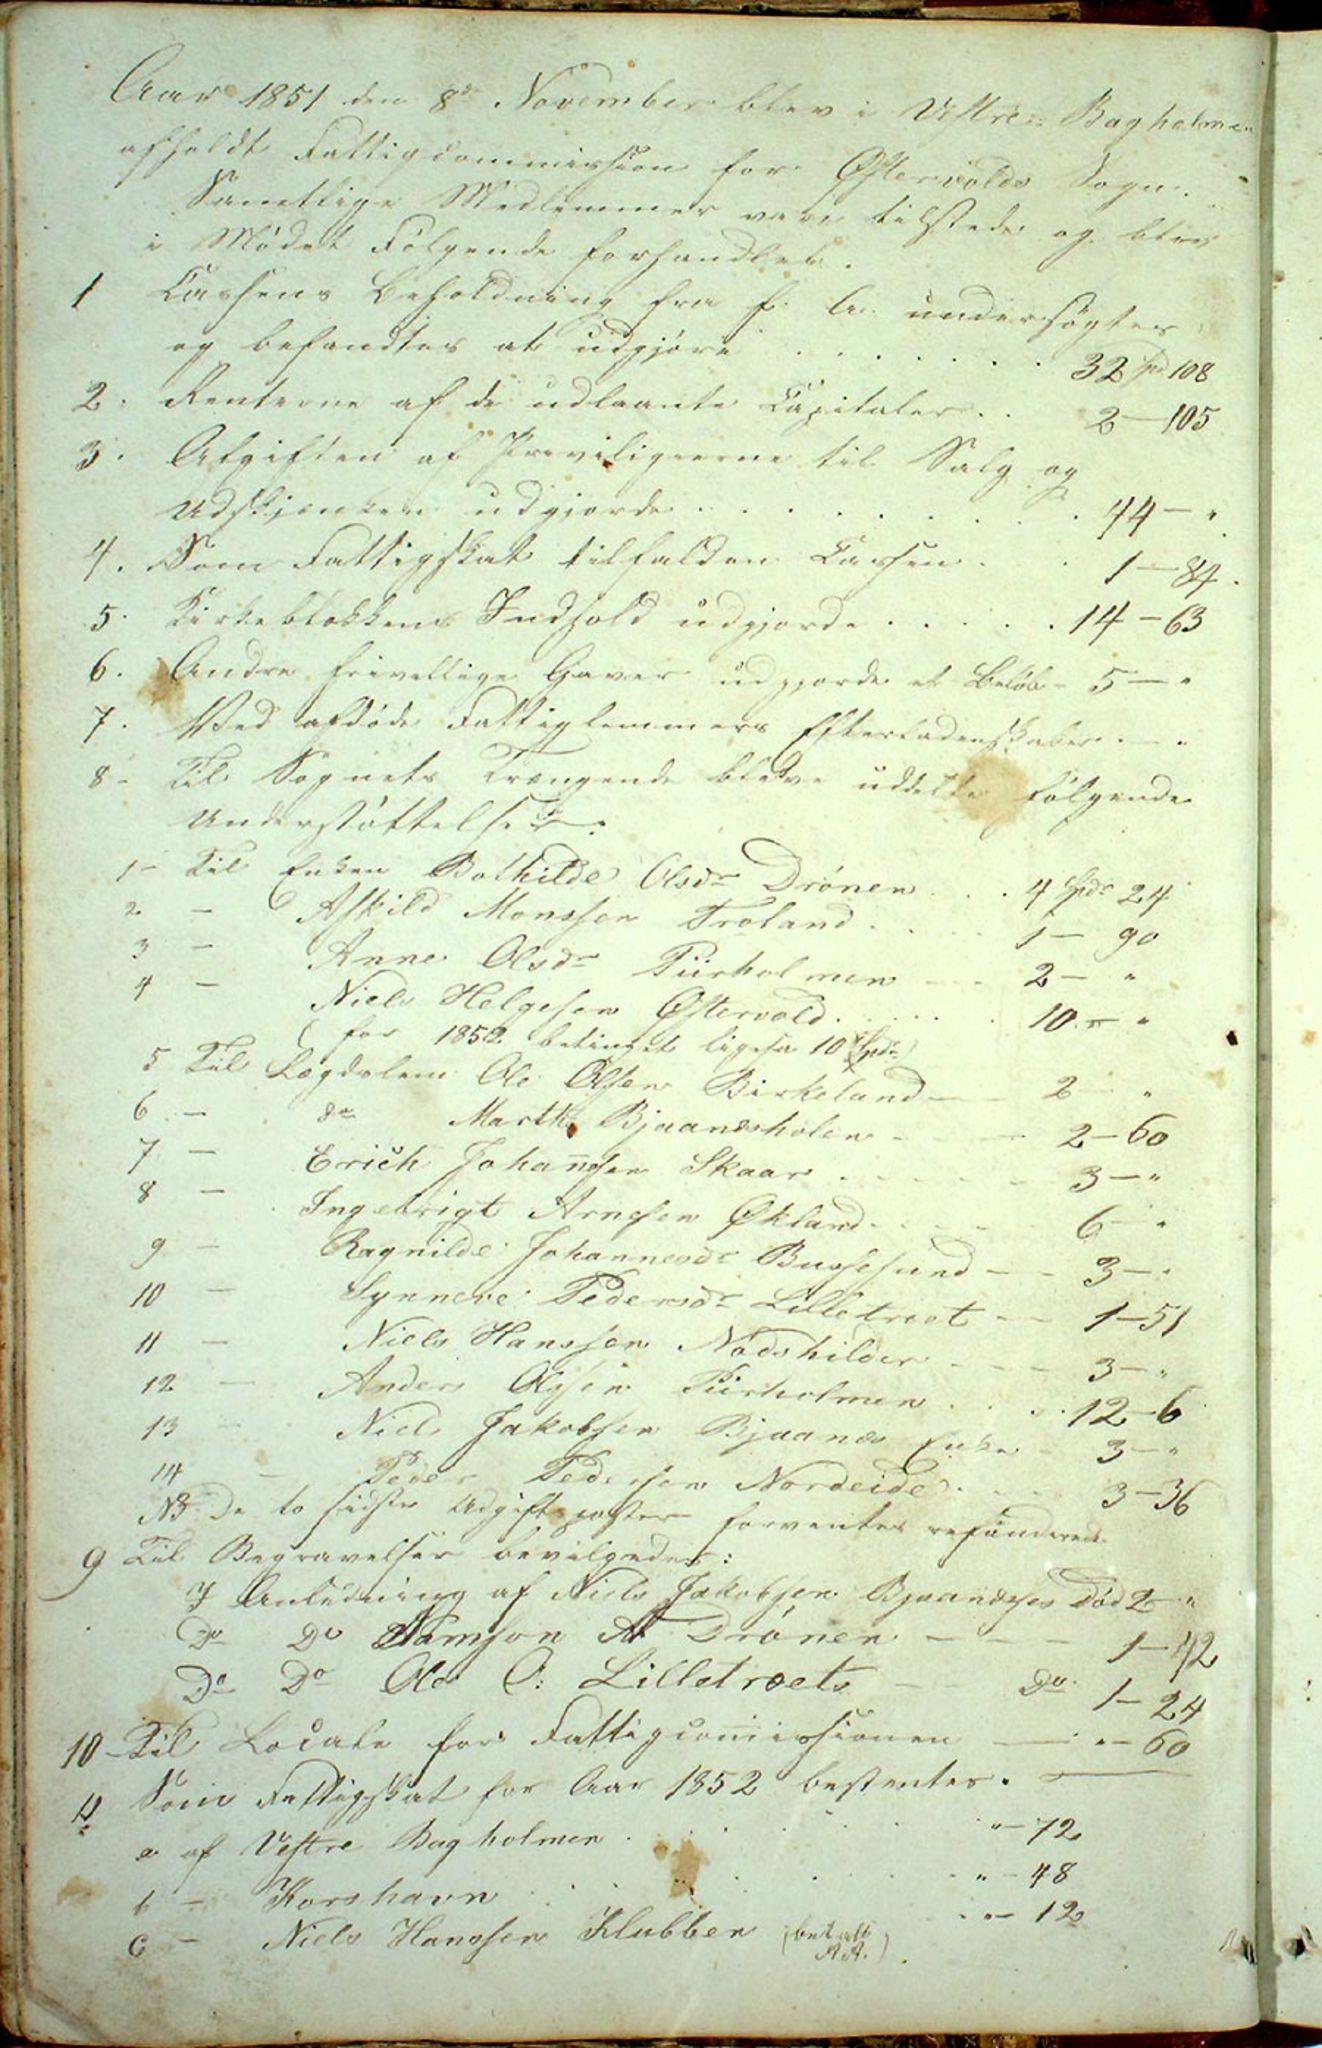 Aar 1851 den 8de November blev i Vestre Bagholmen
afholdt Fattigcommission for Østervolds Sogn.
Samtlige Medlemmer vare tilstede og blev
i Mødet Følgende forhandlet.
1 Cassens Beholdning fra f. A. undersøgtes
og befandtes at udgjøre . . . . . . . 32 Spd 108
2. Renterne af de udlaante Capitaler . . 2 — 105
3. Afgiften af Previligierne til Salg og
Udskjænken udgjorde . . . . . . . . 44 — "
4. Som Fattigskat tilfalden Cassen . . 1 — 84.
5. Kirkeblokkens Indhold udgjorde . . . . . 14 — 63
6. Andre frivellige Gaver udgjorde et Beløb - 5 — "
7. Ved afdøde Fattiglemmers Efterladenskaber . — "
8- Til Sognets Trængende bleve uddelte følgende
Understøttelser.
1- Til Enken Bothilde Olsdr Drönen . . . 4 Spdr 24
2 — Askild Monssen Troland . . . . . 1 — 90
3 — Anne Olsdr Püirholmen — — 2 — "
4 — Niels Helgesen Østervold . . . . . 10 — "
(for 1852 betinget ligesaa 10 Spdr)
5 Til Lægdslem Ole Olsen Birkeland — — 2 — "
6 — do Marthe Bjaanesholen — — — 2 — 60
7 — Erich Johannesen Skaar . . . . . . 3 — "
8 — Ingebrigt Arnesen Økland . . . . . 6 — "
9 — Ragnilde Johannesdr Bussesund — — 3 — "
10 — Synneve Pedersdr Lilletræet — — 1 — 51
11 — Niels Hanssen Nødshilder — — — 3 — "
12 — Anders Olssen Püirholmen . . . . 12 — 6
13 — Niels Jakobsen Bjaanæs Enke — 3 — "
14 — Peder Pedersen Nordeide . . . . 3 — 36
NB. De to sidste Udgiftsposter forventes refunderede.
9 Til Begravelser bevilgedes:
I Anledning af Niels Jakobsen Bjaanæses Død 2 — "
Do Do Samson A. Drönen — — — 1 — 42
Do Do Ole O. Lilletræets — — Do 1 — 24
10 Til Locale for Fattigcomissionen — " — 60
11 Som Fattigskat for Aar 1852 bestemtes.
a af Vestre Bagholmen . . . . . . . " — 72
b — Korshavn . . . . . . . . " — 48
c — Niels Hanssen Klubben (betalt . " — 12
AA.)